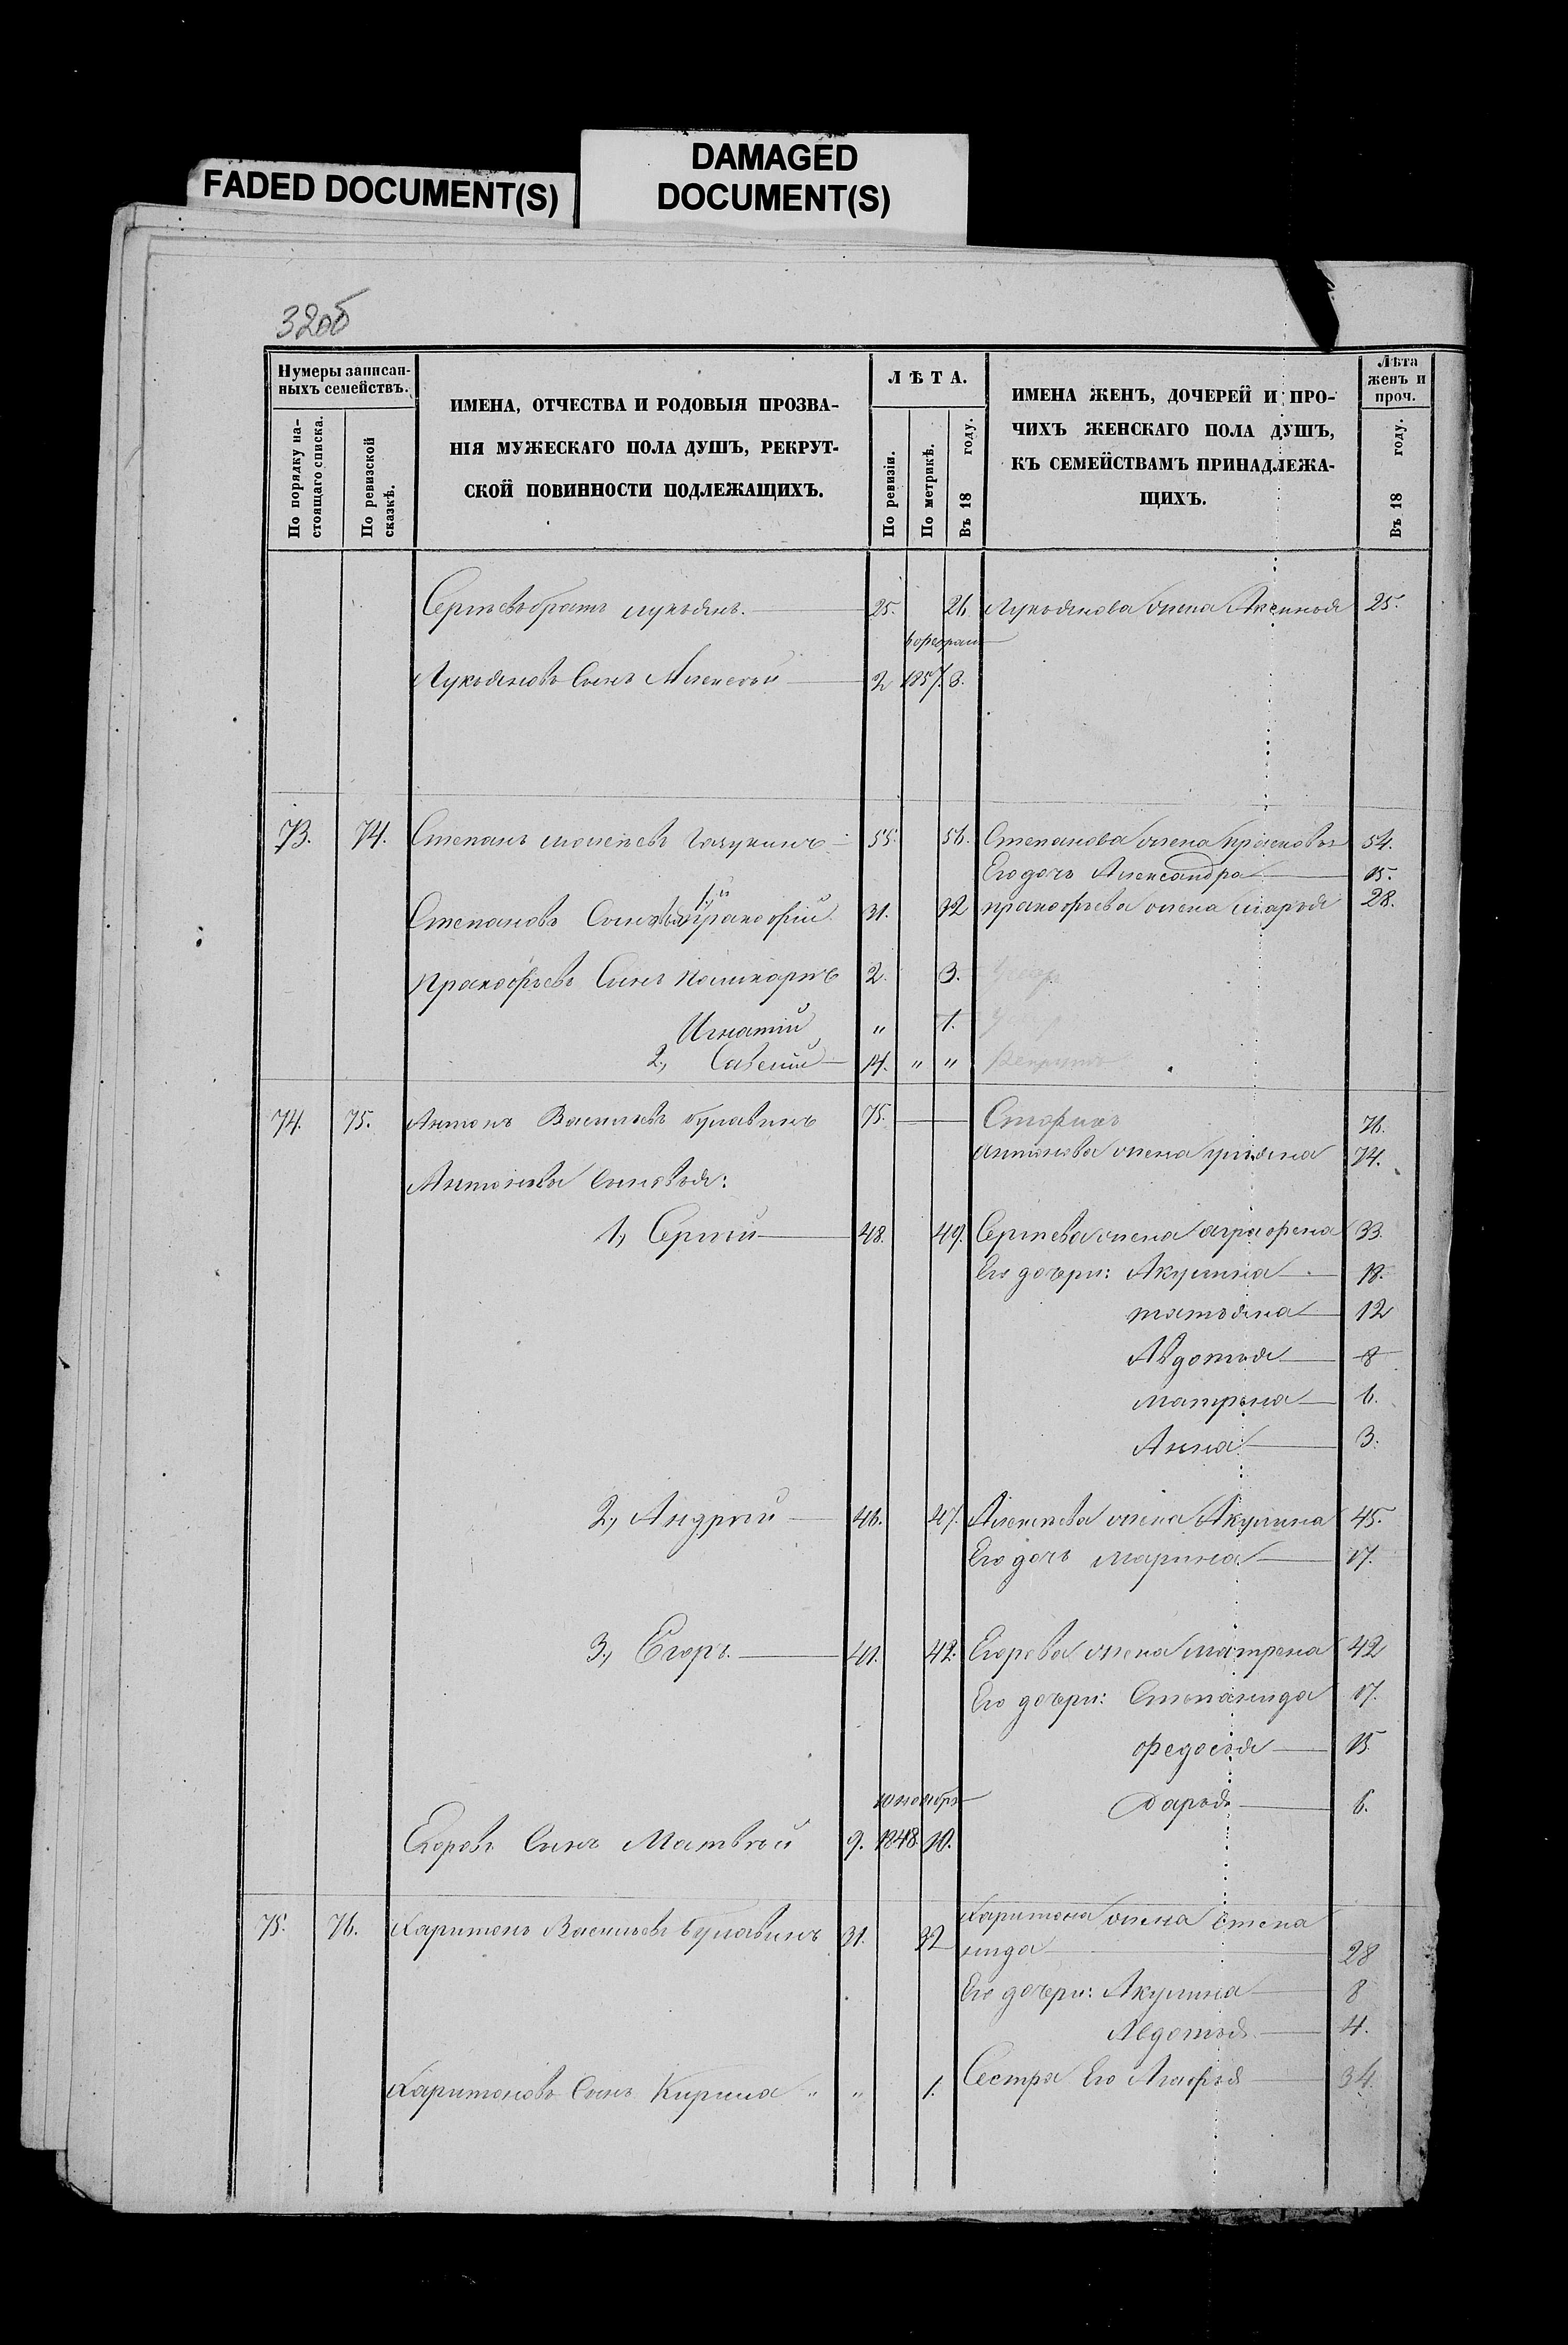 FADED DOCUMENT(S)
DAMAGED
DOCUMENT(S)
32об
Нумеры записан-
ныхъ семействъ.
По порядку на-
стоящаго списка.
По ревизской
сказкѣ.
ИМЕНА, ОТЧЕСТВА И РОДОВЫЯ ПРОЗВА-
НІЯ МУЖЕСКАГО ПОЛА ДУШЪ, РЕКРУТ-
СКОЙ ПОВИННОСТИ ПОДЛЕЖАЩИХЪ.
ЛѢТА.
По ревизіи.
По метрикѣ.
Въ 18 году.
ИМЕНА ЖЕНЪ, ДОЧЕРЕЙ И ПРО-
ЧИХЪ ЖЕНСКАГО ПОЛА ДУШЪ,
КЪ СЕМЕЙСТВАМЪ ПРИНАДЛЕЖА-
ЩИХЪ.
Лѣта
женъ и
проч.
Въ 18 году.
Сергѣевъ братъ лукьянъ. 25. 26. Лукьянова жена Аксинья 25.
Лукьяновъ Сынъ Алексѣй 2 1857. 3.
73. 74. Степанъ 55. 56. Степанова жена прасковья 54.
Его дочь Александра 15.
Степановъ Пракофій 31. 32 пракофьева жена марья 28.
Пракофьевъ Сынъ поликарпъ 2. 3.
Игнатій " 1.
2, Савелій 14. " " Рекрутъ
74. 75. Антонъ Васильевъ булавинъ 75. Старикъ 76.
антонова жена ульяна 74.
Антоновы Сыновья:
1, Сергѣй 48. 49. Сергѣева жена аграфена 33.
Его дочери: Акулина 18.
татьяна 12
Авдотья 8
матрена 6.
Анна 3.
2, Андрѣй 46. 47. Алексѣева жена Акулина 45.
Его дочь марина 17.
3, Егоръ. 41. 42. Егорова жена матрена 42
Его дочери: Степанида 17.
федосья 15.
дарья 6.
Егоровъ Сынъ Матвѣй 9. 1848. 10.
75. 76. Харитонъ Васильевъ булавинъ 31. 32 Харитона жена степа
нида 28
Его дочери: Акулина 8
Авдотья 4.
Харитоновъ Сынъ Кирила " " 1. Сестра Его Агафья 34.